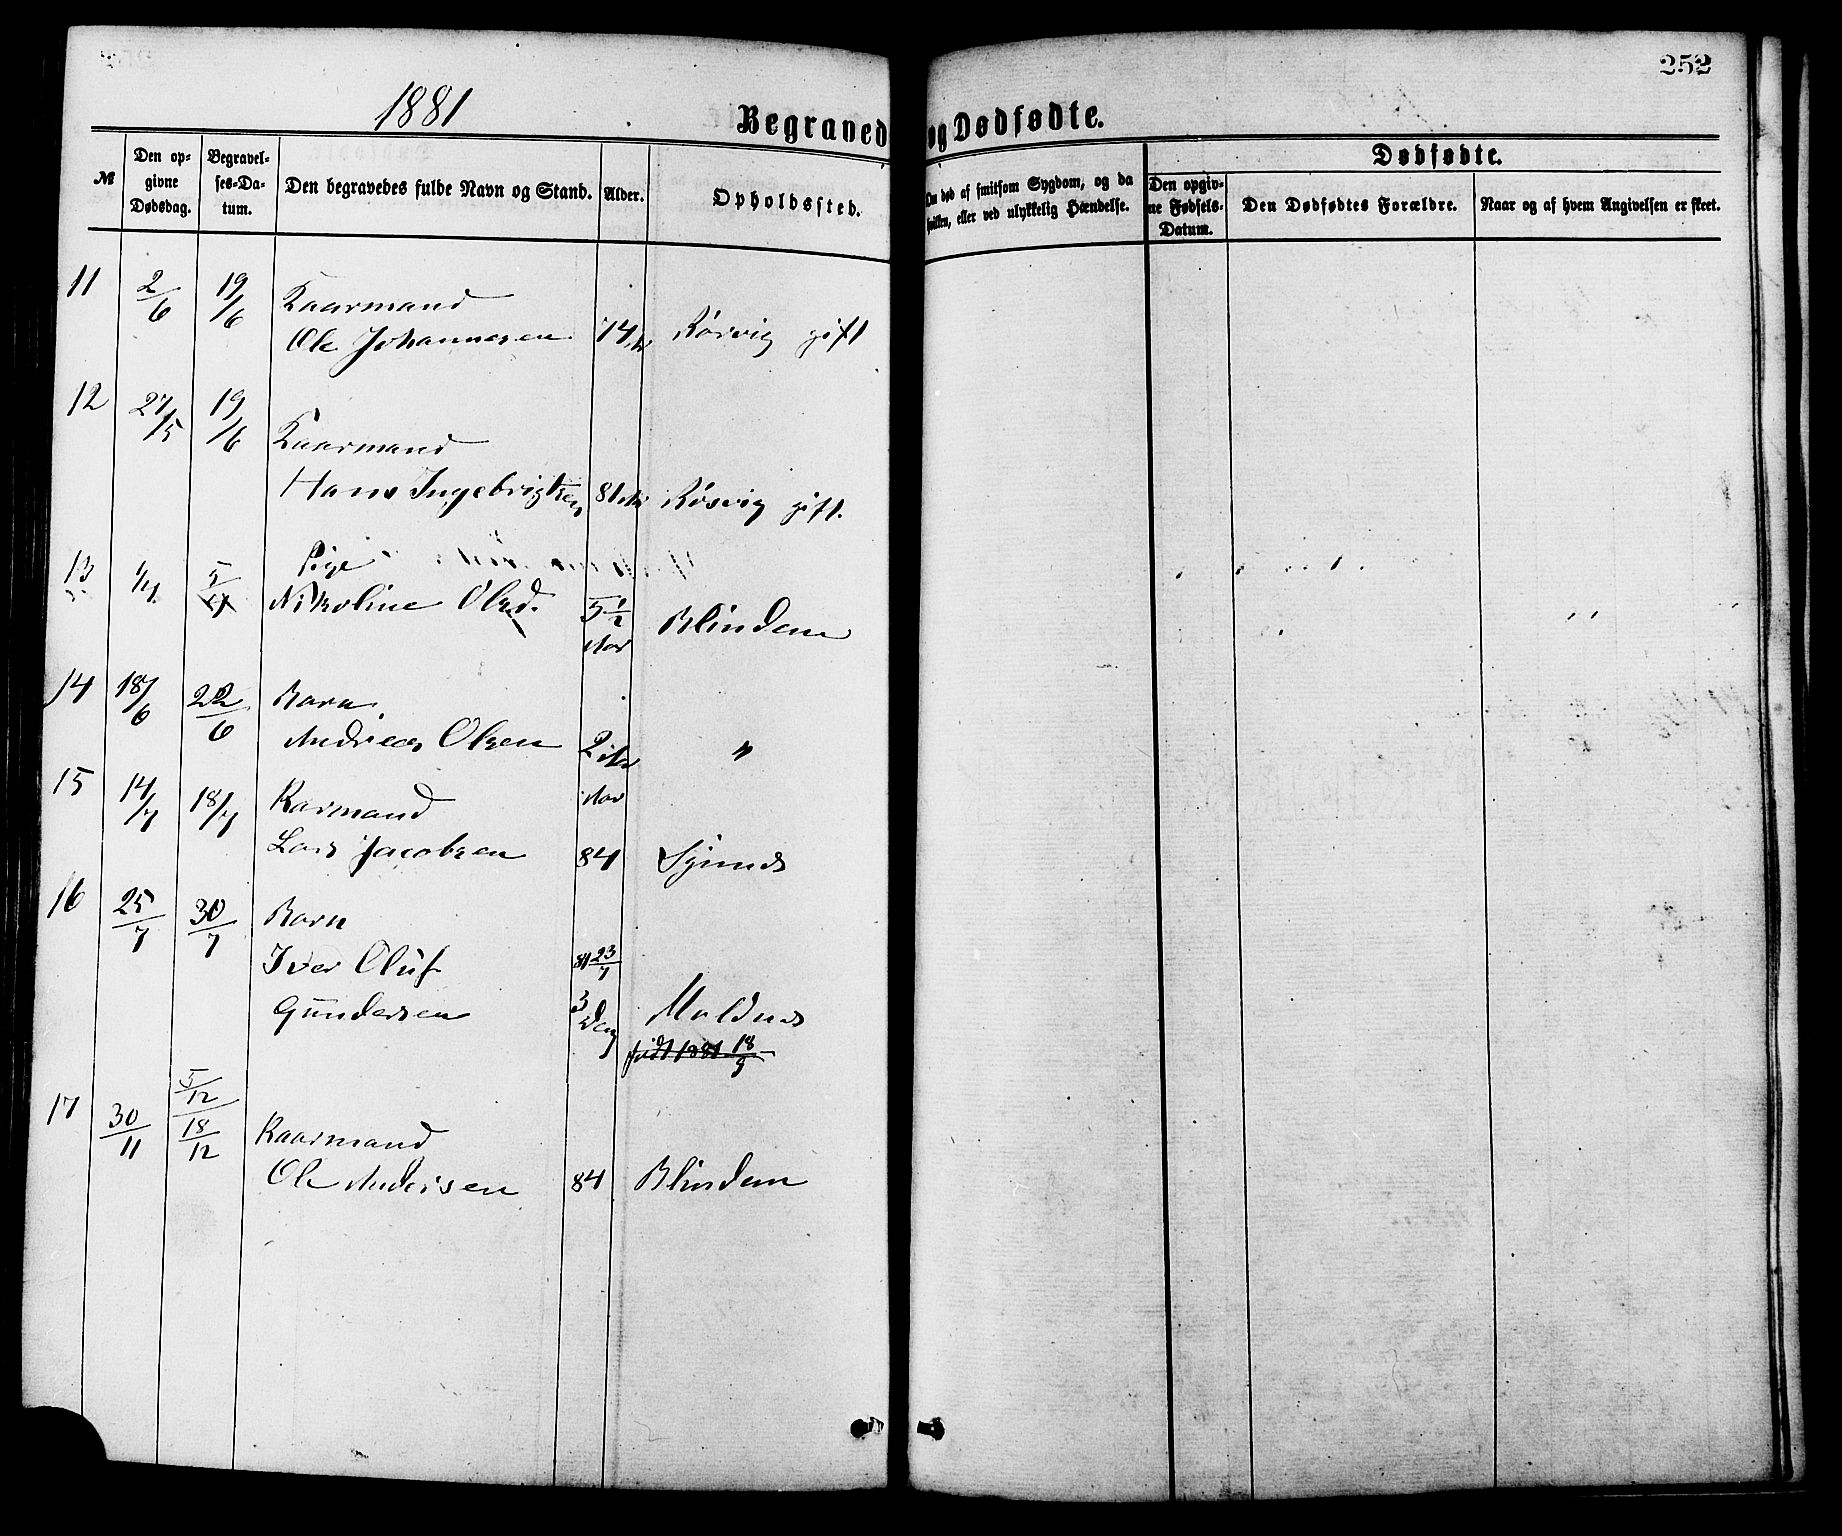 252
1881
Begravede og Dødfødte.
№
Den opgivne Dødsdag.
Begravelses-Datum.
Den begravedes fulde Navn og Stand.
Alder.
Opholdssted.
Om død af smitsom Sygdom, og da hvilken, eller ved ulykkelig Hændelse.
Dødfødte.
Den opgivne Fødsels-Datum.
Den Dødfødtes Forældre.
Naar og af hvem Angivelsen er skeet.
11 2/6 19/6 Kaarmand
Ole Johannesen 74 Rørvig gift
12 27/5 19/6 Kaarmand
Hans Ingebrigtsen 81 Rørvig gift.
13 1/4 5/4 Pige
Nikoline Olsd. 5 1/2 Blindem
Aar
14 18/6 22/6 Barn
Andreas Olsen 2 Aar "
15 14/7 18/7 Karmand Aar
Lars Jacobsen 84 Synnes
16 25/7 30/7 Barn
Iver Oluf 81 23/7
Gundersen 3 Dag Moldnes
født 1881 18/9
17 30/11 5/12
18/12 Kaarmand
Ole Andersen 84 Blindem